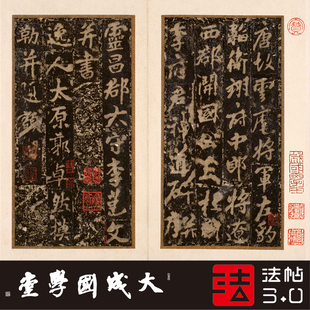 唐故雲麾將軍右豹
韜衛翊府中郎將遼
西郡開國公上柱國
李府君神道碑
靈昌郡太守李邕文
并書
逸人太原郭卓然模
勒并題額
大成國學堂
法
法帖
3.0